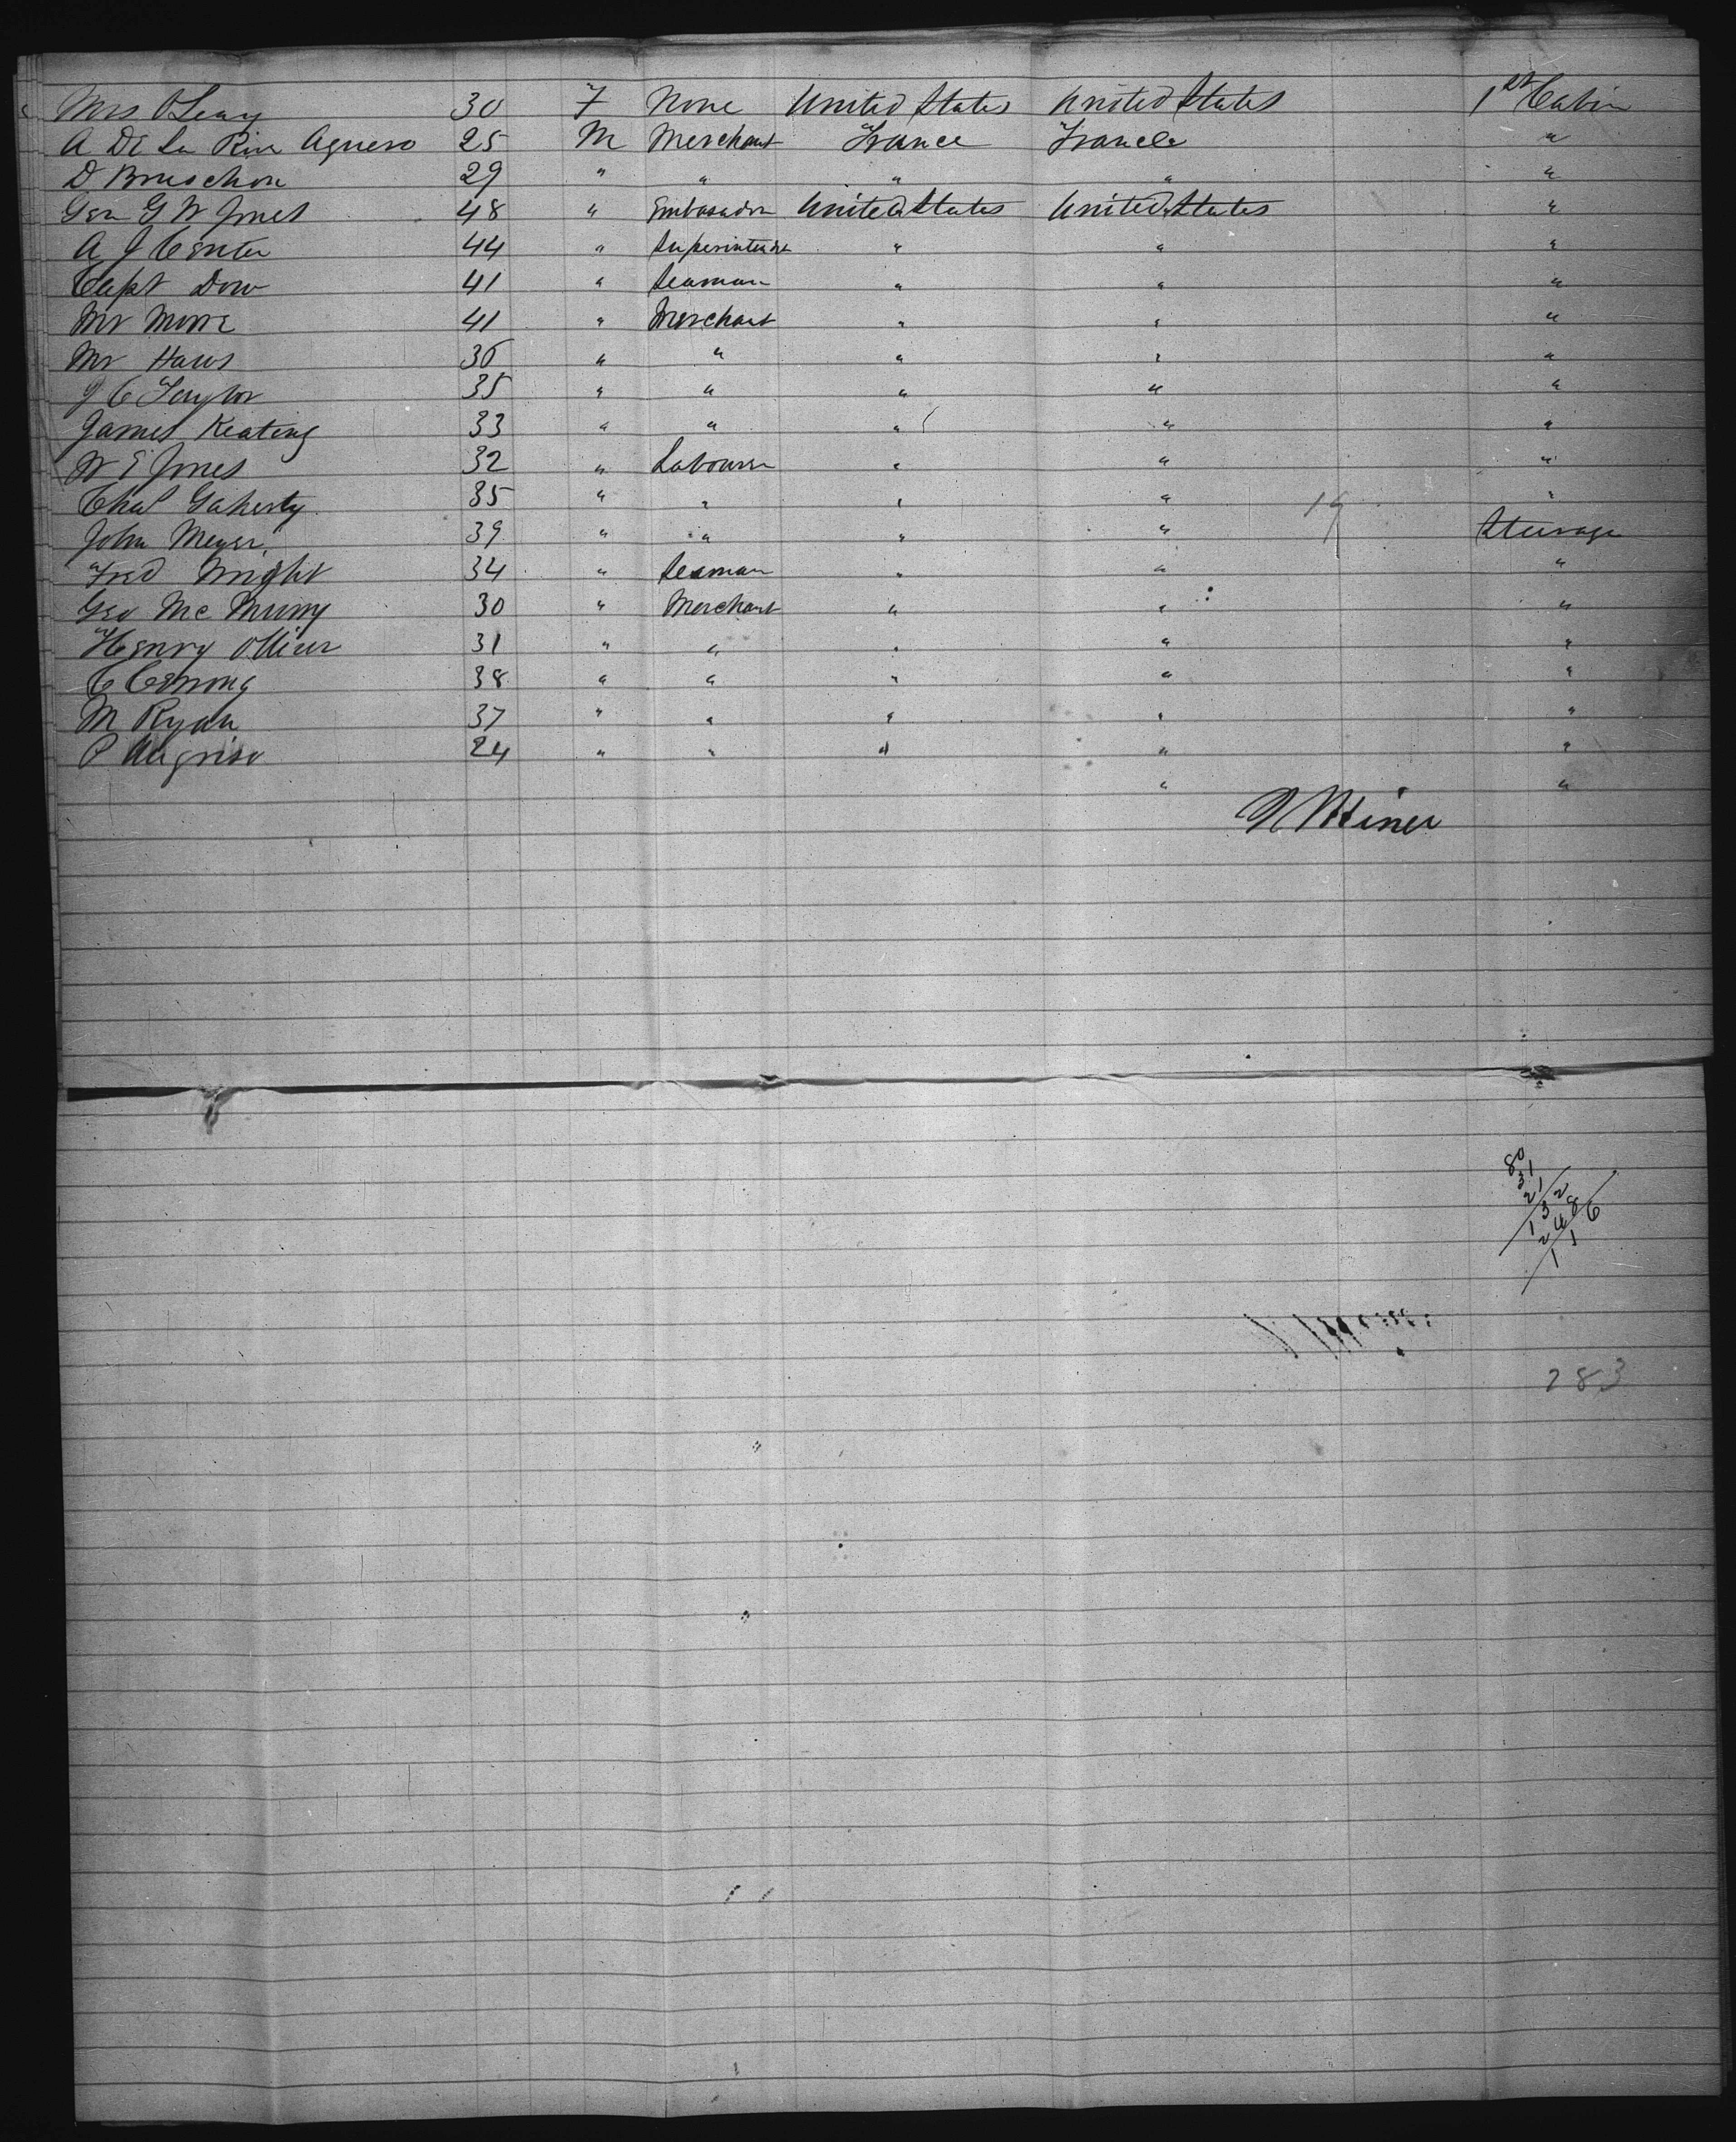 Mrs O'Leary 30 F None United States United States 1st Cabin
A De La Riva Aguero 25 M Merchant France France "
D Bruschon 29 " " " " "
Gen G W Jones 48 " Embasador United States United States "
A J Center 44 " Superintende " " "
Capt Dow 41 " Seaman " " "
Mr More 41 " Merchant " " "
Mr Haws 36 " " " " "
J C Taylor 35 " " " " "
James Keating 33 " " " " "
W E Jones 32 " Labourer " " "
Chas Gaherty 35 " " " " 19 "
John Meyer 39 " " " " Steerage
Fred Wright 34 " Seaman " " "
Geo Mc Murry 30 " Merchant " " "
Henry Ollier 31 " " " " "
C 38 " " " " "
M Ryan 37 " " " " "
P 24 " " " " "
" "
80
31
21
132
248
116
283